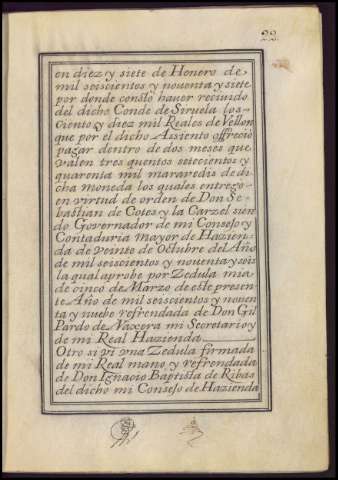 22
en diez y siete de Henero de
mil seiscientos y nouenta y siete
por donde constò hauer reciuido
del dicho Conde de Siruela los
ciento y diez mil Reales de Vellon
que por el dicho Assiento offreciò
pagar dentro de dos meses que
valen tres quentos setecientos y
quarenta mil maravedis de di
cha moneda los quales entregò
en virtud de orden de Don Se
bastian de Cotes y la Carzel sien
do Governador de mi Consejo y
Contaduria mayor de Hazien
da de veinte de Octubre del Año
de mil seiscientos y nouenta y seis
la qual aprobe por Zedula mia
de cinco de Marzo de este presen
te Año de mil seiscientos y nouen
ta y nuebe refrendada de Don Gil
Pardo de Naxera mi Secretario y
de mi Real Hazienda
Otro si vi una Zedula firmada
de mi Real mano y refrendada
de Don Ignacio Baptista de Ribas
del dicho mi Consejo de Hazienda